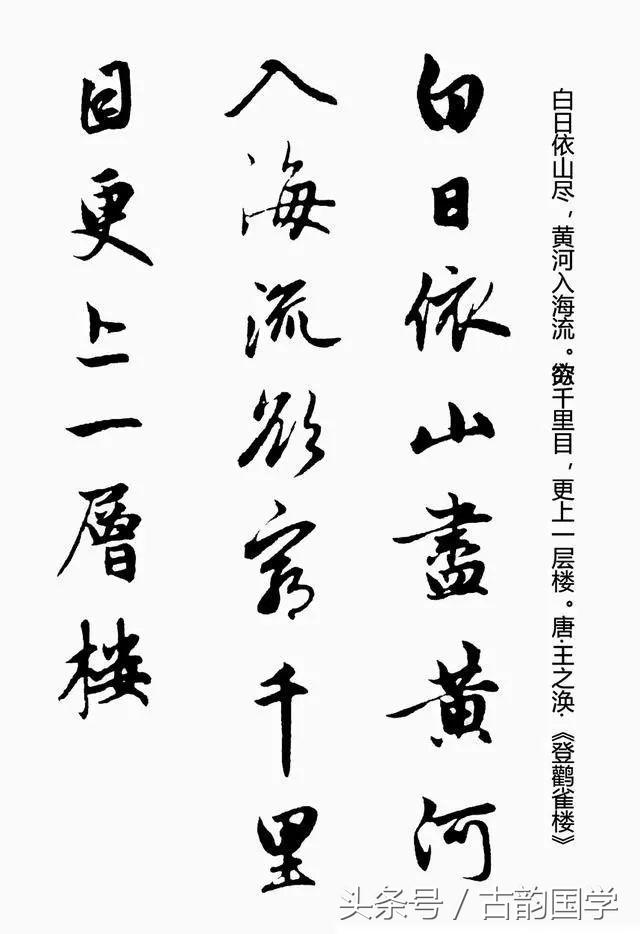 白日依山尽，黄河入海流。欲穷千里目，更上一层楼。唐·王之涣·《登鹳雀楼》
白日依山盡黄河
入海流欲窮千里
目更上一層楼
头条号／古韵国学